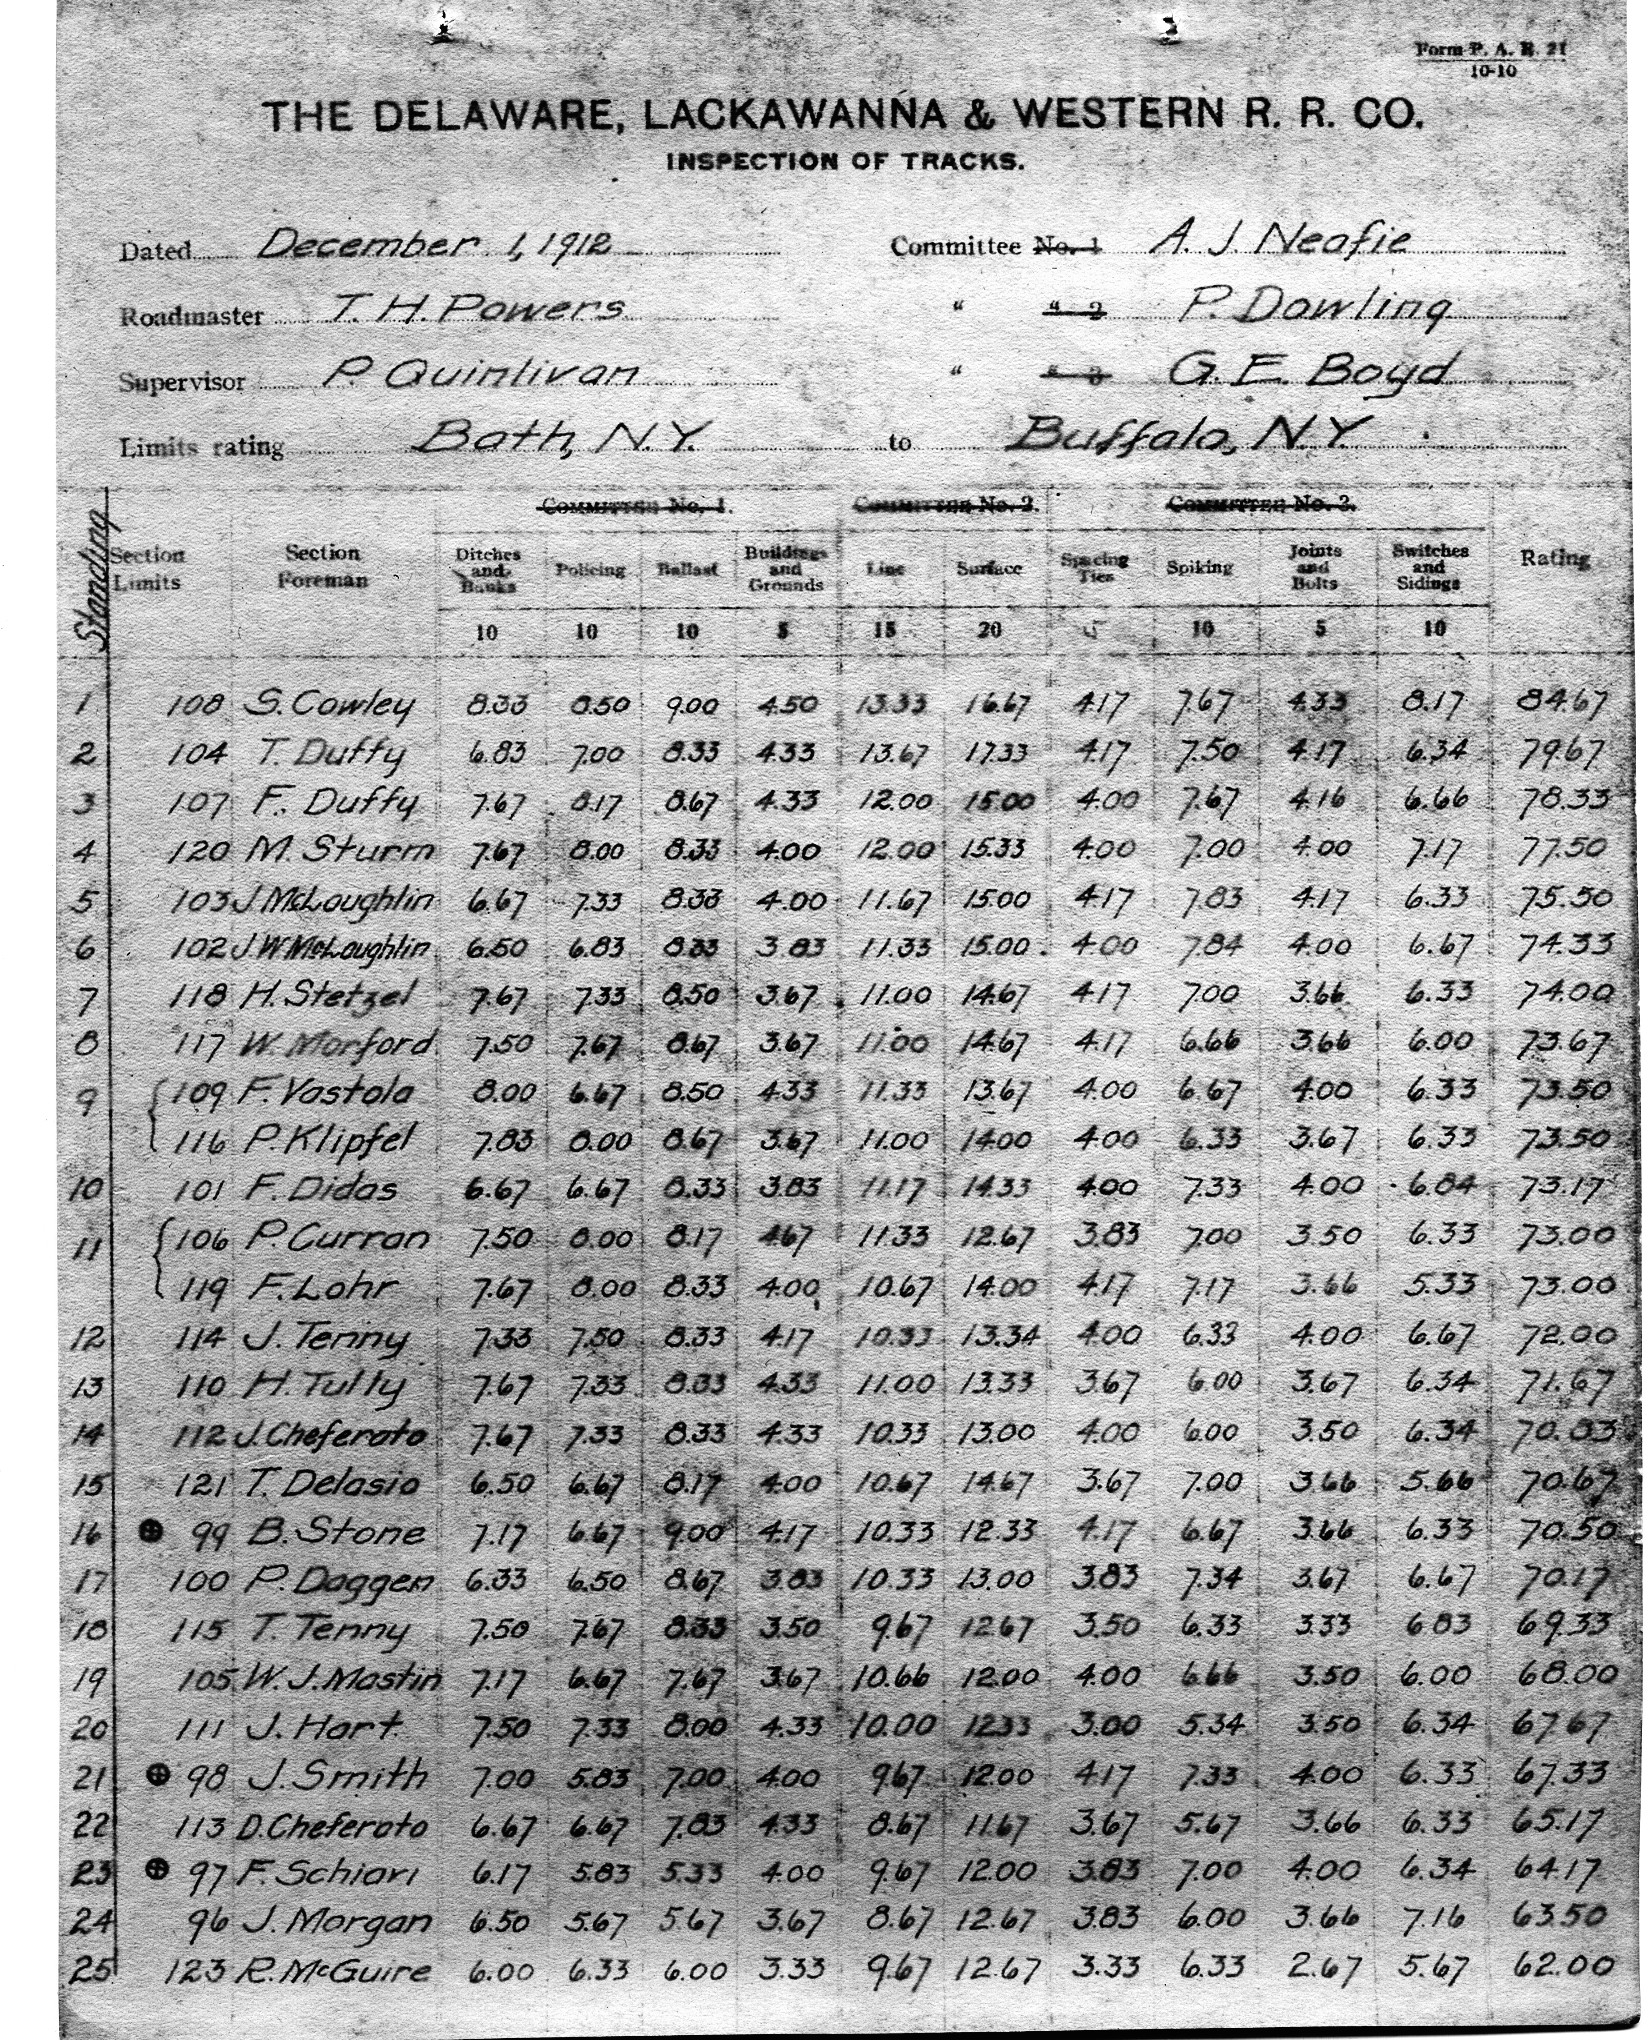 Form P. A. R. 21
10-10
THE DELAWARE, LACKAWANNA & WESTERN R. R. CO.
INSPECTION OF TRACKS.
Dated December 1, 1912 Committee No. 1 A. J. Neafie
Roadmaster T. H. Powers " " 2 P. Dowling
Supervisor P. Quinlivan " " 3 G. E. Boyd
Limits rating Bath, N.Y. to Buffalo, N.Y.
Committee No. 1. Committee No. 2. Committee No. 3.
Standing Section Limits Section Foreman Ditches and Banks Policing Ballast Buildings and Grounds Line Surface Spacing Ties Spiking Joints and Bolts Switches and Sidings Rating
10 10 10 5 15 20 5 10 5 10
1 108 S. Cowley 8.33 8.50 9.00 4.50 13.33 16.67 4.17 7.67 4.33 8.17 84.67
2 104 T. Duffy 6.83 7.00 8.33 4.33 13.67 17.33 4.17 7.50 4.17 6.34 79.67
3 107 F. Duffy 7.67 8.17 8.67 4.33 12.00 15.00 4.00 7.67 4.16 6.66 78.33
4 120 M. Sturm 7.67 8.00 8.33 4.00 12.00 15.33 4.00 7.00 4.00 7.17 77.50
5 103 J. McLaughlin 6.67 7.33 8.33 4.00 11.67 15.00 4.17 7.83 4.17 6.33 75.50
6 102 J. W. McLaughlin 6.50 6.83 8.33 3.83 11.33 15.00 4.00 7.84 4.00 6.67 74.33
7 118 H. Stetzel 7.67 7.33 8.50 3.67 11.00 14.67 4.17 7.00 3.66 6.33 74.00
8 117 W. Morford 7.50 7.67 8.67 3.67 11.00 14.67 4.17 6.66 3.66 6.00 73.67
9 109 F. Vastola 8.00 6.67 8.50 4.33 11.33 13.67 4.00 6.67 4.00 6.33 73.50
116 P. Klipfel 7.83 8.00 8.67 3.67 11.00 14.00 4.00 6.33 3.67 6.33 73.50
10 101 F. Didas 6.67 6.67 8.33 3.83 11.17 14.33 4.00 7.33 4.00 6.84 73.17
11 106 P. Curran 7.50 8.00 8.17 4.67 11.33 12.67 3.83 7.00 3.50 6.33 73.00
119 F. Lohr 7.67 8.00 8.33 4.00 10.67 14.00 4.17 7.17 3.66 5.33 73.00
12 114 J. Tenny 7.33 7.50 8.33 4.17 10.33 13.34 4.00 6.33 4.00 6.67 72.00
13 110 H. Tully 7.67 7.33 8.33 4.33 11.00 13.33 3.67 6.00 3.67 6.34 71.67
14 112 J. Cheferato 7.67 7.33 8.33 4.33 10.33 13.00 4.00 6.00 3.50 6.34 70.83
15 121 T. Delasio 6.50 6.67 8.17 4.00 10.67 14.67 3.67 7.00 3.66 5.66 70.67
16 ⊕ 99 B. Stone 7.17 6.67 9.00 4.17 10.33 12.33 4.17 6.67 3.66 6.33 70.50
17 100 P. Daggen 6.33 6.50 8.67 3.83 10.33 13.00 3.83 7.34 3.67 6.67 70.17
18 115 T. Tenny 7.50 7.67 8.33 3.50 9.67 12.67 3.50 6.33 3.33 6.83 69.33
19 105 W. J. Mastin 7.17 6.67 7.67 3.67 10.66 12.00 4.00 6.66 3.50 6.00 68.00
20 111 J. Hart 7.50 7.33 8.00 4.33 10.00 12.33 3.00 5.34 3.50 6.34 67.67
21 ⊕ 98 J. Smith 7.00 5.83 7.00 4.00 9.67 12.00 4.17 7.33 4.00 6.33 67.33
22 113 D. Cheferato 6.67 6.67 7.83 4.33 8.67 11.67 3.67 5.67 3.66 6.33 65.17
23 ⊕ 97 F. Schiari 6.17 5.83 5.33 4.00 9.67 12.00 3.83 7.00 4.00 6.34 64.17
24 96 J. Morgan 6.50 5.67 5.67 3.67 8.67 12.67 3.83 6.00 3.66 7.16 63.50
25 123 R. McGuire 6.00 6.33 6.00 3.33 9.67 12.67 3.33 6.33 2.67 5.67 62.00